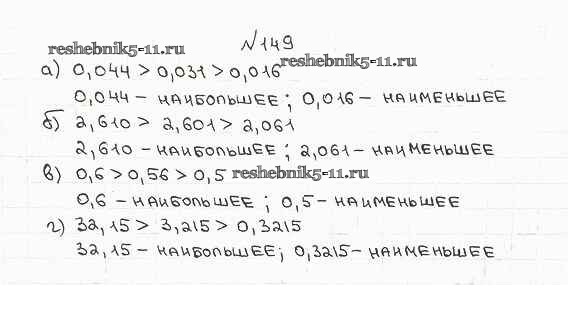 №149
reshebnik5-11.ru
а) 0,044 > 0,031 > 0,016
reshebnik5-11.ru
0,044 – наибольшее; 0,016 – наименьшее
б) 2,610 > 2,601 > 2,061
2,610 – наибольшее; 2,061 – наименьшее
в) 0,6 > 0,56 > 0,5
reshebnik5-11.ru
0,6 – наибольшее; 0,5 – наименьшее
г) 32,15 > 3,215 > 0,3215
32,15 – наибольшее; 0,3215 – наименьшее